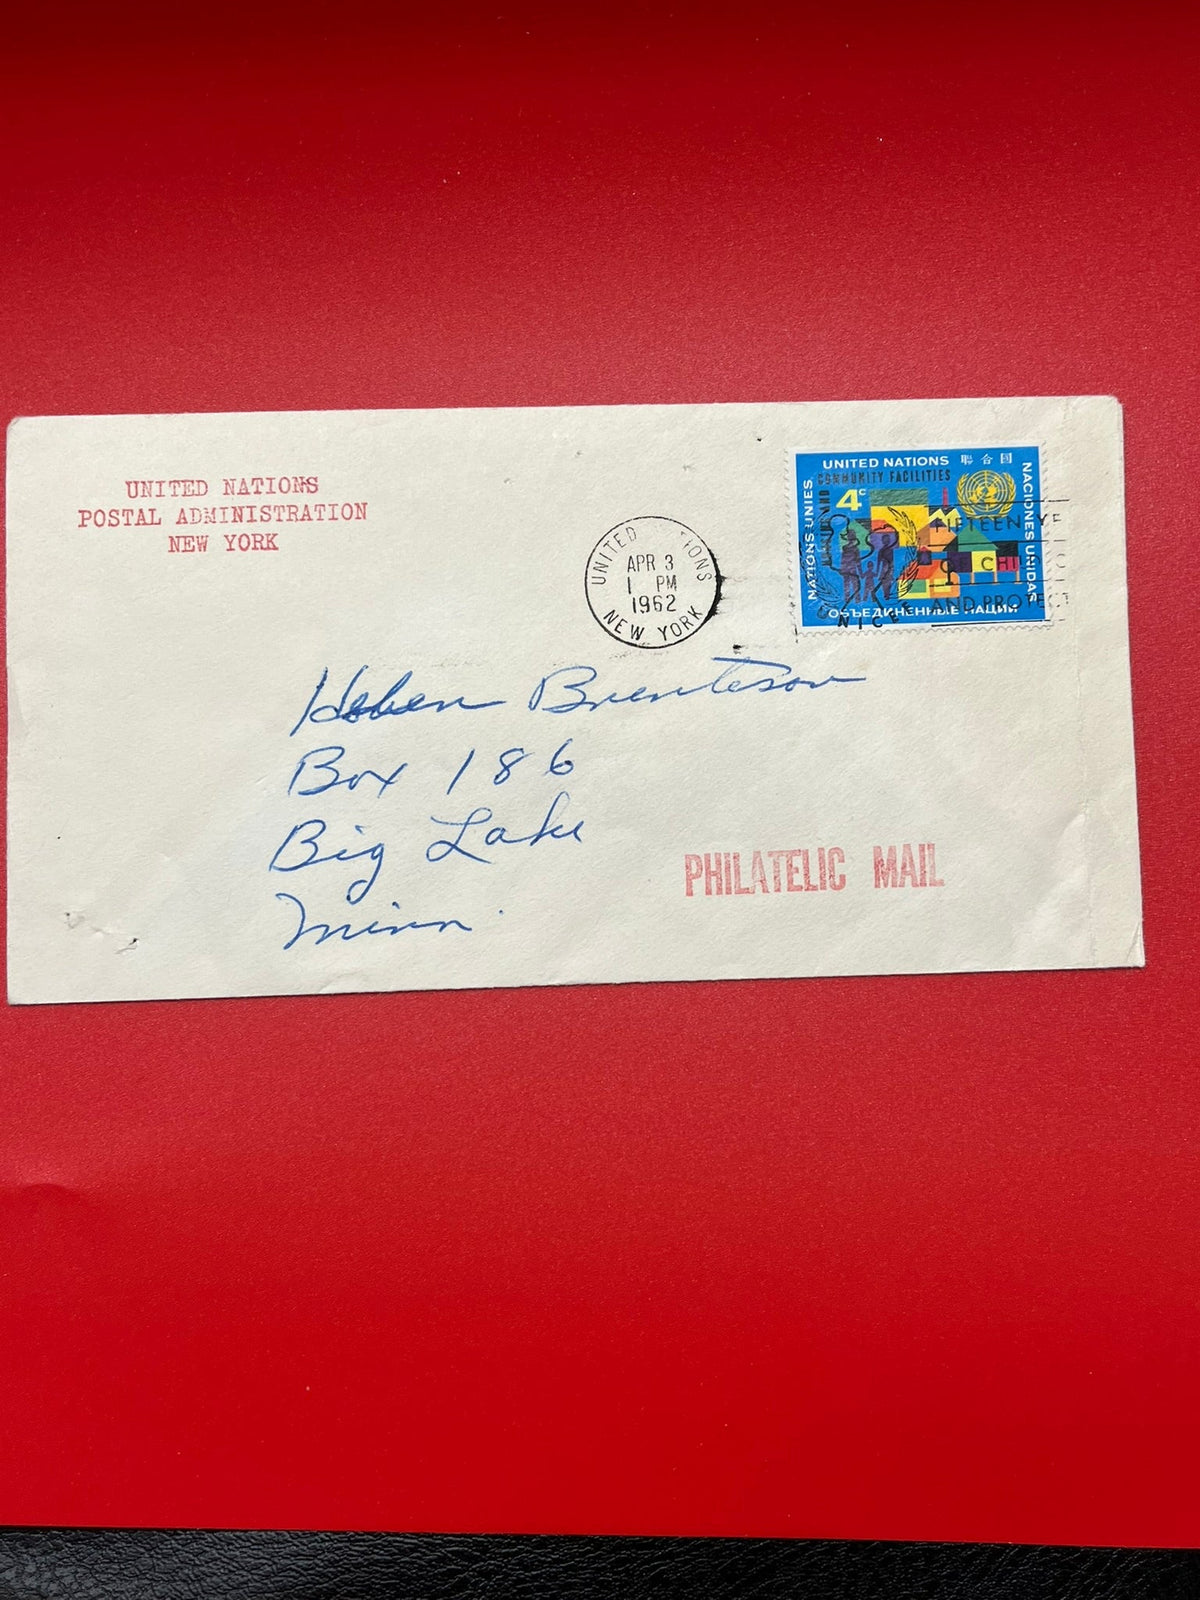 UNITED NATIONS
POSTAL ADMINISTRATION
NEW YORK
UNITED NATIONS
NEW YORK
APR 3
1 PM
1962
UNITED NATIONS 聯合國
COMMUNITY FACILITIES
4c
NATIONS UNIES
NACIONES UNIDAS
ОБЪЕДИНЕННЫЕ НАЦИИ
FIFTEEN YE
CHILD
AND PROTECT
UNICEF
Brenteson
Box 186
Big Lake
Minn.
PHILATELIC MAIL